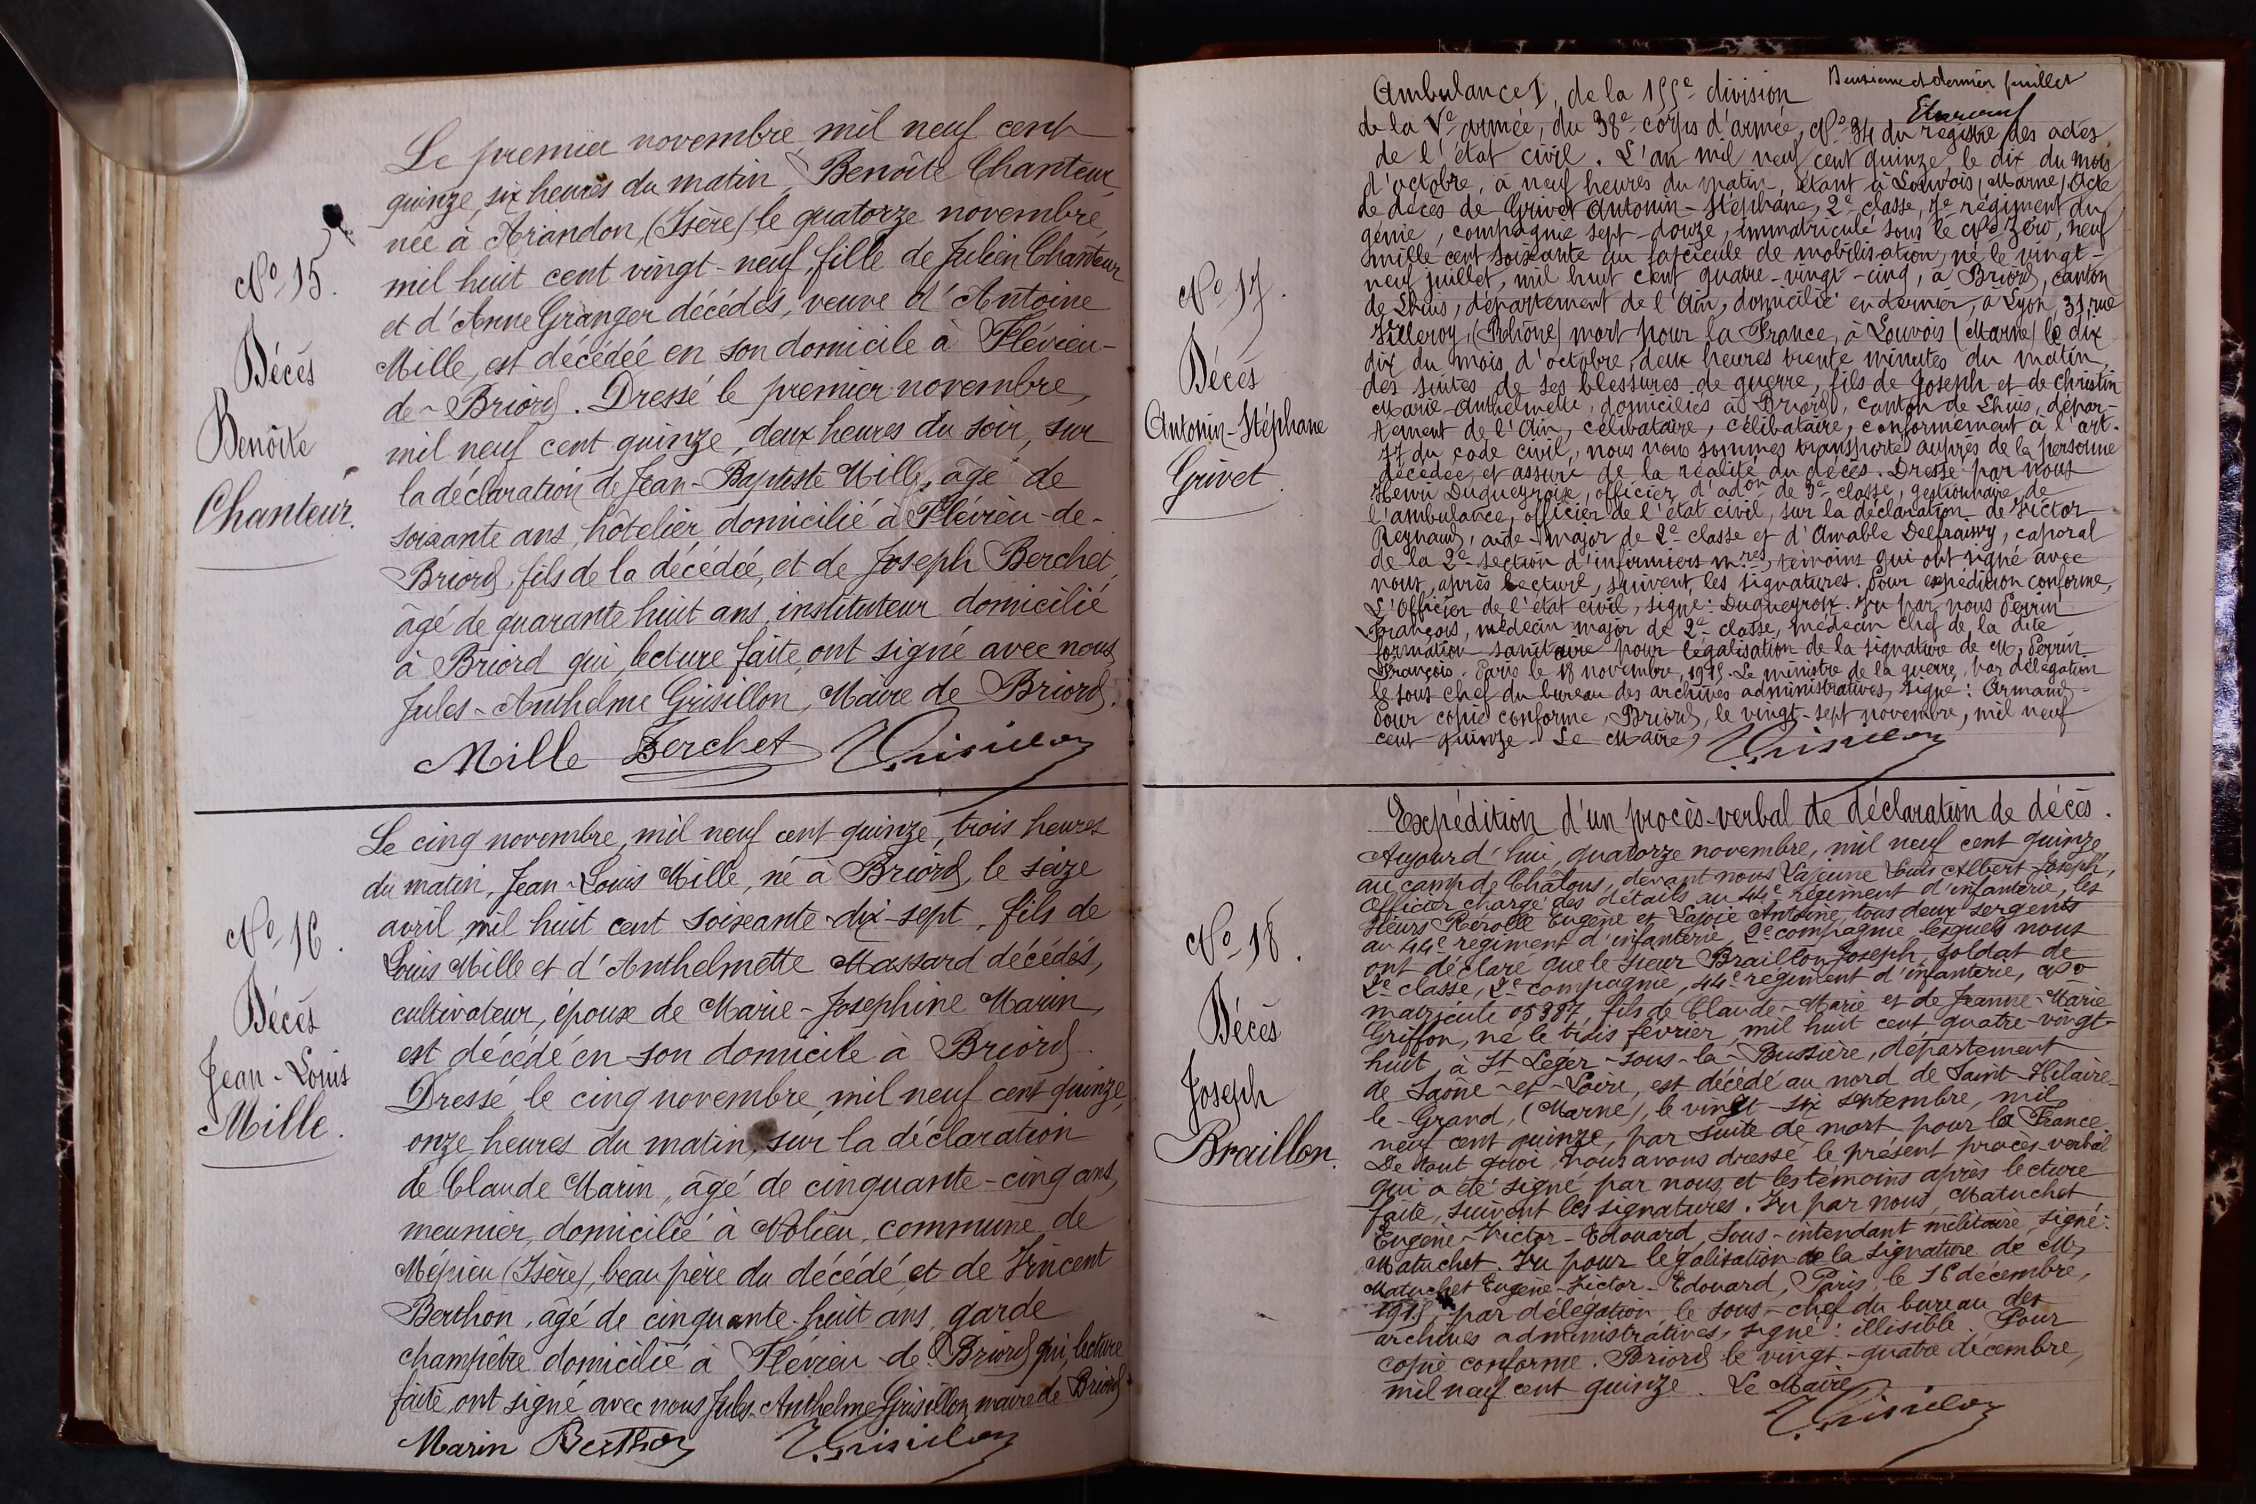 No 15.
Décès
Benoîte
Chanteur.
Le premier novembre, mil neuf cent
quinze, six heures du matin, Benoîte Chanteur,
née à Arandon, (Isère) le quatorze novembre,
mil huit cent vingt-neuf, fille de Julien Chanteur
et d'Anne Granger décédés, veuve d'Antoine
Mille, est décédée en son domicile à Flévieu-
de-Briord. Dressé le premier novembre,
mil neuf cent quinze, deux heures du soir, sur
la déclaration de Jean-Baptiste Mille, âgé de
soixante ans, hôtelier domicilié à Flévieu-de-
Briord, fils de la décédée, et de Joseph Berchet,
âgé de quarante huit ans, instituteur domicilié
à Briord qui, lecture faite, ont signé avec nous
Jules-Anthelme Grisillon, Maire de Briord.
Mille Berchet Grisillon
No 16.
Décès
Jean-Louis
Mille.
Le cinq novembre, mil neuf cent quinze, trois heures
du matin, Jean-Louis Mille, né à Briord, le seize
avril, mil huit cent soixante-dix-sept, fils de
Louis Mille et d'Anthelmette Massard décédés,
cultivateur, époux de Marie-Josephine Marin,
est décédé en son domicile à Briord.
Dressé le cinq novembre, mil neuf cent quinze,
onze heures du matin, sur la déclaration
de Claude Marin, âgé de cinquante-cinq ans,
meunier, domicilié à Nolieu, commune de
Mépieu (Isère), beau père du décédé, et de Vincent
Berthon, âgé de cinquante-huit ans, garde
champêtre domicilié à Flévieu-de-Briord qui, lecture
faite, ont signé avec nous Jules-Anthelme Grisillon, maire de Briord.
Marin Berthon Grisillon
Deuxième et dernier feuillet
No 17.
Décès
Antonin-Stéphane
Grivet.
Ambulance I, de la 155e division
de la Ve armée, du 38e corps d'armée, No 34 du registre des actes
de l'état civil. L'an mil neuf cent quinze le dix du mois
d'octobre, à neuf heures du matin, étant à Louvois (Marne) Acte
de décès de Grivet Antonin-Stéphane, 2e classe, 7e régiment du
génie, compagnie sept-douze, immatriculé sous le No zéro, neuf
mille cent soixante au fascicule de mobilisation, né le vingt-
neuf juillet, mil huit cent quatre-vingt-cinq, à Briord, canton
de Lhuis, département de l'Ain, domicilié en dernier, à Lyon, 31, rue
Villeroy, (Rhône) mort pour la France, à Louvois (Marne) le dix
dix du mois d'octobre, deux heures trente minutes du matin,
des suites de ses blessures de guerre, fils de Joseph et de Christin
Marie-Anthelmette, domiciliés à Briord, canton de Lhuis, dépar-
tement de l'Ain, célibataire, célibataire, conformément à l'art.
77 du code civil, nous nous sommes transporté auprès de la personne
décédée et assuré de la réalité du décès. Dressé par nous
Henri Duqueyroix, officier d'adon de 3e classe, gestionnaire de
l'ambulance, officier de l'état civil, sur la déclaration de Victor
Reynaud, aide-major de 2e classe et d'Amable Delfraissy, caporal
de la 2e section d'infirmiers mres, témoins qui ont signé avec
nous, après lecture, suivent les signatures. Pour expédition conforme,
L'Officier de l'état civil, signé: Duqueyroix. Vu par nous Perrin
François, médecin major de 2e classe, médecin chef de la dite
formation sanitaire pour légalisation de la signature de M. Perrin
François. Paris le 18 novembre, 1915. Le ministre de la guerre, par délégation
le sous chef du bureau des archives administratives, signé: Armand.
Pour copie conforme, Briord, le vingt-sept novembre, mil neuf
cent quinze. Le Maire, Grisillon
No 18.
Décès
Joseph
Braillon.
Expédition d'un procès-verbal de déclaration de décès.
Aujourd'hui, quatorze novembre, mil neuf cent quinze,
au camp de Châlons, devant nous Lajeune Louis Albert Joseph,
Officier chargé des détails au 44e régiment d'infanterie, les
sieurs Rérolle Eugène et Lajoie Antoine, tous deux sergents
au 44e régiment d'infanterie, 2e compagnie, lesquels nous
ont déclaré que le sieur Braillon Joseph, soldat de
2e classe, 2e compagnie, 44e régiment d'infanterie, No
matricule 05387, fils de Claude-Marie et de Jeanne-Marie
Griffon, né le trois février, mil huit cent quatre-vingt-
huit à St Leger-sous-la-Bussière, département
de Saône-et-Loire, est décédé au nord de Saint-Hilaire-
le-Grand, (Marne), le vingt-six septembre, mil
neuf cent quinze, par suite de mort pour la France.
De tout quoi, nous avons dressé le présent procès-verbal
qui a été signé par nous et les témoins après lecture
faite, suivent les signatures. Vu par nous, Matuchet
Eugène-Victor-Edouard, Sous-intendant militaire, signé:
Matuchet. Vu pour légalisation de la signature de M.
Matuchet Eugène-Victor-Edouard, Paris, le 16 décembre,
1915 par délégation le sous-chef du bureau des
archives administratives, signé: illisible. Pour
copie conforme. Briord le vingt-quatre décembre,
mil neuf cent quinze. Le Maire,
Grisillon